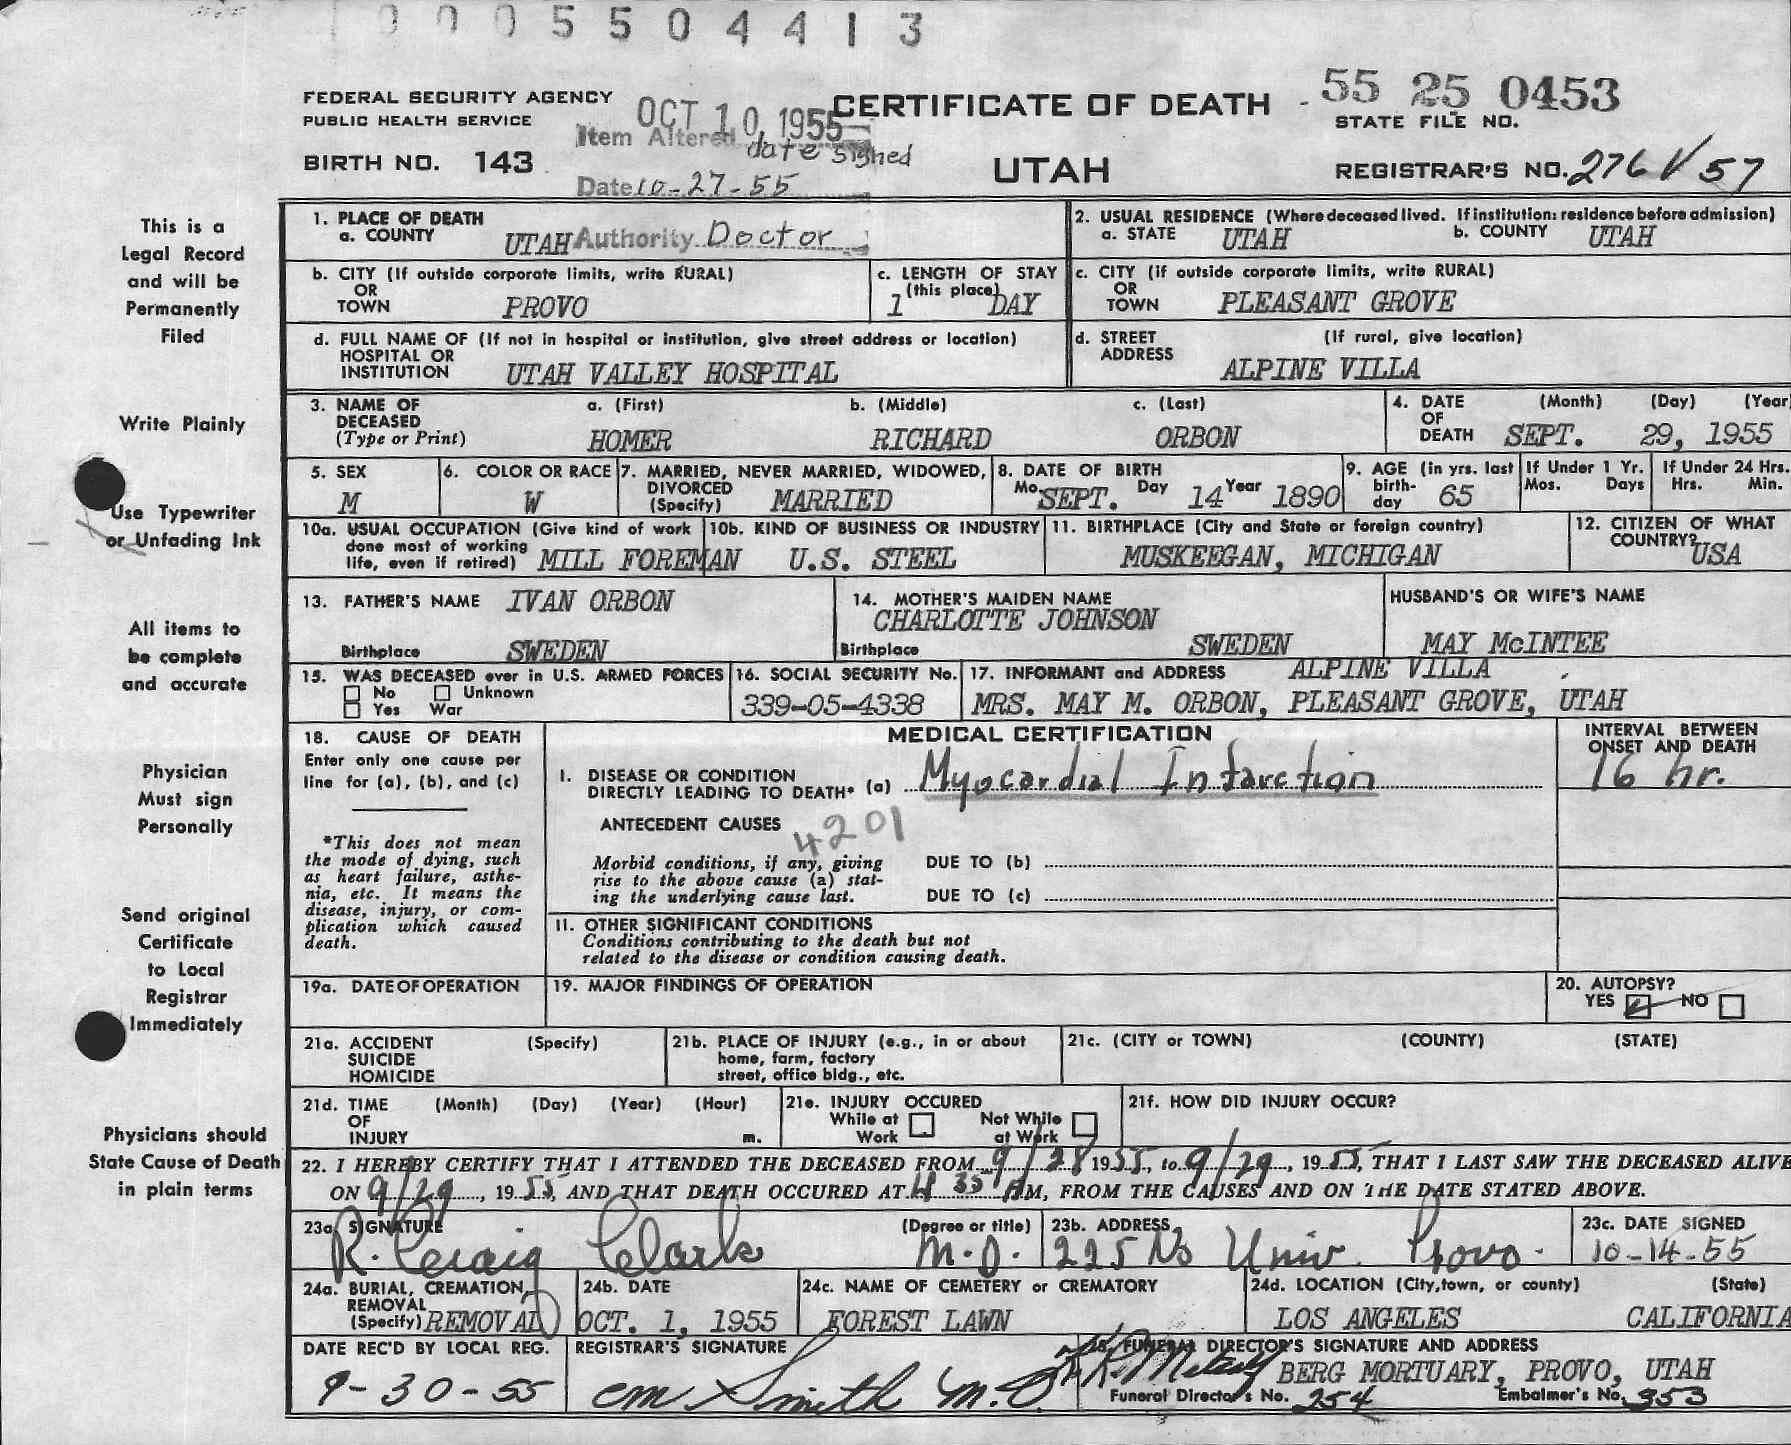 0005504413
FEDERAL SECURITY AGENCY
PUBLIC HEALTH SERVICE
BIRTH NO. 143
OCT 10, 1955
Item Altered date signed
Date 10-27-55
Authority Doctor
CERTIFICATE OF DEATH
UTAH
55 25 0453
STATE FILE NO.
REGISTRAR'S NO. 276 V 57
This is a
Legal Record
and will be
Permanently
Filed
Write Plainly
Use Typewriter
or Unfading Ink
All items to
be complete
and accurate
Physician
Must sign
Personally
Send original
Certificate
to Local
Registrar
Immediately
Physicians should
State Cause of Death
in plain terms
1. PLACE OF DEATH
a. COUNTY UTAH
2. USUAL RESIDENCE (Where deceased lived. If institution: residence before admission)
a. STATE UTAH b. COUNTY UTAH
b. CITY (If outside corporate limits, write RURAL)
OR
TOWN PROVO
c. LENGTH OF STAY
(this place)
1 DAY
c. CITY (if outside corporate limits, write RURAL)
OR
TOWN PLEASANT GROVE
d. FULL NAME OF (If not in hospital or institution, give street address or location)
HOSPITAL OR
INSTITUTION UTAH VALLEY HOSPITAL
d. STREET (If rural, give location)
ADDRESS
ALPINE VILLA
3. NAME OF a. (First) b. (Middle) c. (Last)
DECEASED
(Type or Print) HOMER RICHARD ORBON
4. DATE (Month) (Day) (Year
OF
DEATH SEPT. 29, 1955
5. SEX
M
6. COLOR OR RACE
W
7. MARRIED, NEVER MARRIED, WIDOWED,
DIVORCED
(Specify) MARRIED
8. DATE OF BIRTH
Mo. SEPT. Day 14 Year 1890
9. AGE (in yrs. last
birth-
day 65
If Under 1 Yr.
Mos. Days
If Under 24 Hrs.
Hrs. Min.
10a. USUAL OCCUPATION (Give kind of work
done most of working
life, even if retired) MILL FOREMAN
10b. KIND OF BUSINESS OR INDUSTRY
U.S. STEEL
11. BIRTHPLACE (City and State or foreign country)
MUSKEEGAN, MICHIGAN
12. CITIZEN OF WHAT
COUNTRY?
USA
13. FATHER'S NAME IVAN ORBON
Birthplace SWEDEN
14. MOTHER'S MAIDEN NAME
CHARLOTTE JOHNSON
Birthplace SWEDEN
HUSBAND'S OR WIFE'S NAME
MAY McINTEE
15. WAS DECEASED ever in U.S. ARMED FORCES
No Unknown
Yes War
16. SOCIAL SECURITY No.
339-05-4338
17. INFORMANT and ADDRESS ALPINE VILLA
MRS. MAY M. ORBON, PLEASANT GROVE, UTAH
18. CAUSE OF DEATH
Enter only one cause per
line for (a), (b), and (c)
*This does not mean
the mode of dying, such
as heart failure, asthe-
nia, etc. It means the
disease, injury, or com-
plication which caused
death.
MEDICAL CERTIFICATION
I. DISEASE OR CONDITION
DIRECTLY LEADING TO DEATH* (a) Myocardial Infarction
INTERVAL BETWEEN
ONSET AND DEATH
16 hr.
ANTECEDENT CAUSES
4201
Morbid conditions, if any, giving
rise to the above cause (a) stat-
ing the underlying cause last.
DUE TO (b)
DUE TO (c)
II. OTHER SIGNIFICANT CONDITIONS
Conditions contributing to the death but not
related to the disease or condition causing death.
19a. DATE OF OPERATION
19. MAJOR FINDINGS OF OPERATION
20. AUTOPSY?
YES NO
21a. ACCIDENT (Specify)
SUICIDE
HOMICIDE
21b. PLACE OF INJURY (e.g., in or about
home, farm, factory
street, office bldg., etc.
21c. (CITY or TOWN) (COUNTY) (STATE)
21d. TIME (Month) (Day) (Year) (Hour)
OF
INJURY m.
21e. INJURY OCCURED
While at Work Not While at Work
21f. HOW DID INJURY OCCUR?
22. I HEREBY CERTIFY THAT I ATTENDED THE DECEASED FROM 9/28 1955, to 9/29, 1955, THAT I LAST SAW THE DECEASED ALIVE
ON 9/29, 1955, AND THAT DEATH OCCURED AT 4 35 AM, FROM THE CAUSES AND ON THE DATE STATED ABOVE.
23a. SIGNATURE (Degree or title)
R. Craig Clark M.D.
23b. ADDRESS
225 No Univ. Provo.
23c. DATE SIGNED
10-14-55
24a. BURIAL, CREMATION,
REMOVAL
(Specify) REMOVAL
24b. DATE
OCT. 1, 1955
24c. NAME OF CEMETERY or CREMATORY
FOREST LAWN
24d. LOCATION (City, town, or county) (State)
LOS ANGELES CALIFORNIA
DATE REC'D BY LOCAL REG.
9-30-55
REGISTRAR'S SIGNATURE
CM Smith M.D.
25. FUNERAL DIRECTOR'S SIGNATURE AND ADDRESS
BERG MORTUARY, PROVO, UTAH
Funeral Director's No. 254 Embalmer's No. 353